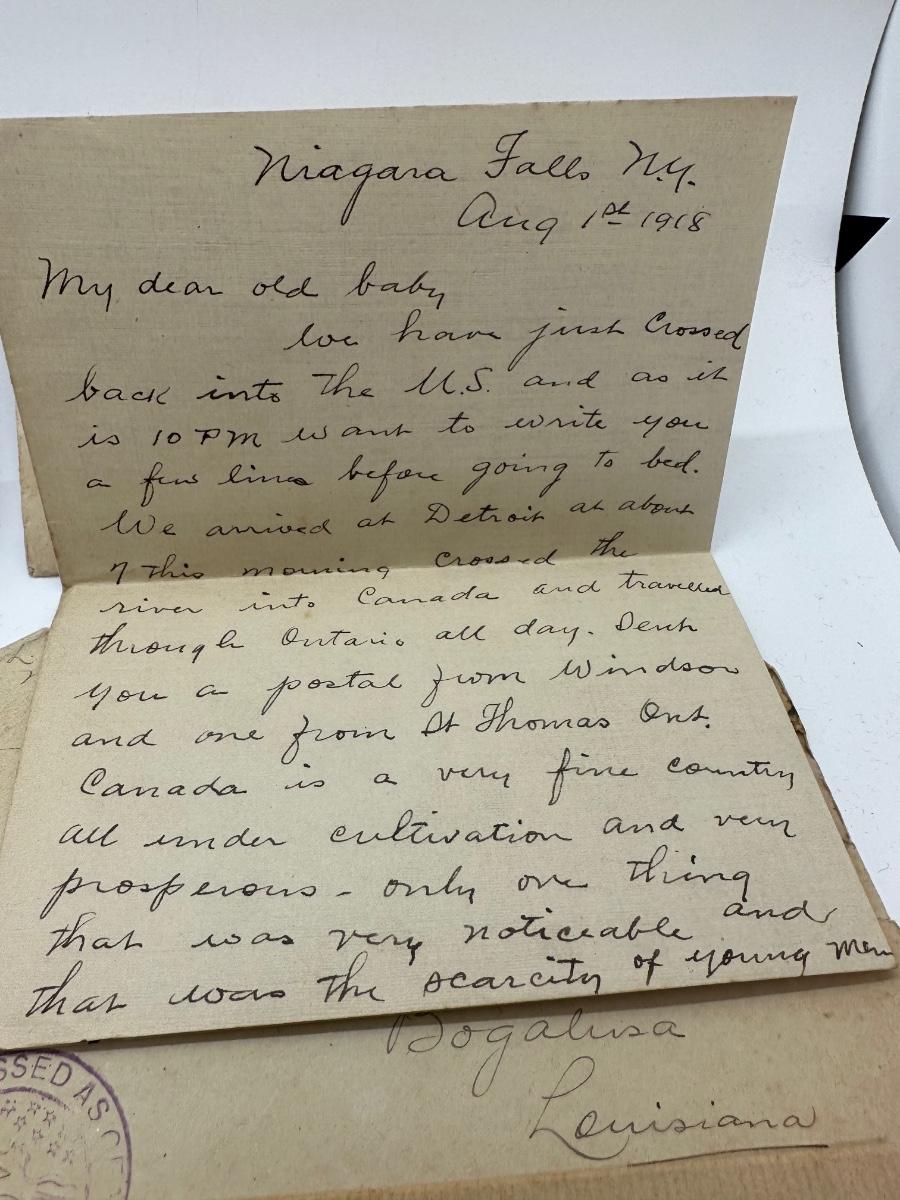 Niagara Falls N.Y.
Aug 1st 1918
My dear old baby
We have just Crossed
back into The U.S. and as it
is 10 PM want to write you
a few lines before going to bed.
We arrived at Detroit at about
7 This morning Crossed the
river into Canada and travelled
through Ontario all day. Sent
you a postal from Windsor
and one from St Thomas Ont.
Canada is a very fine country
all under cultivation and very
prosperous - only one thing
that was very noticeable and
that was the scarcity of young men
Bogalusa
Louisiana
SSED AS